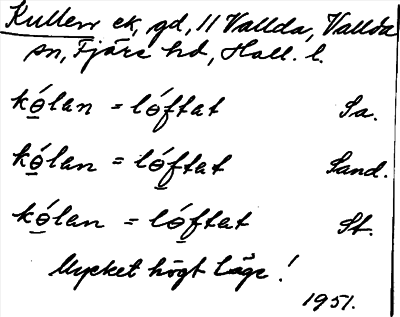 Kullen ek, gd, 11 Vallda, Vallda
sn, Fjäre hd, Hall. l.
kó̱lan = lóftat Sa.
kó̱lan = ló̱ftat Sand.
kó̱lan = ló̱ftat St.
Mycket högt läge!
1951.